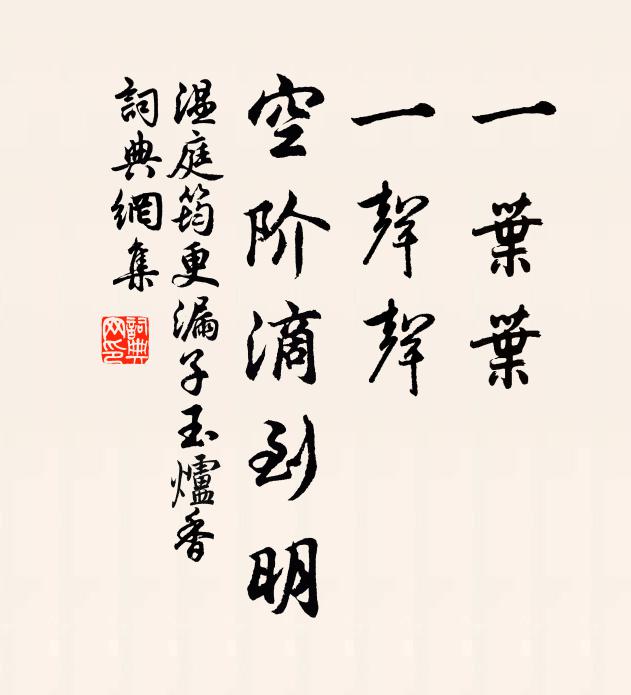 一葉葉
一聲聲
空阶滴到明
温庭筠更漏子玉爐香
詞典網集
詞典網印